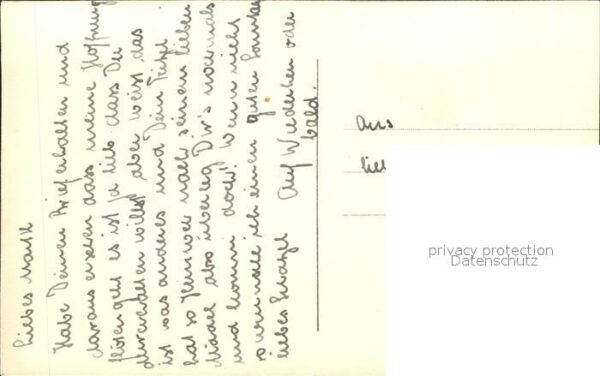 Liebes
Habe Deinen Brief erhalten und
daraus ersehen dass meine Hoffnung
flöten geht es ist ja lieb dass Du
willst aber weist das
ist was anderes und Dein
hat so Heimweh nach seinem lieben
also überleg Dir's nochmals
und komm doch! Wenn nicht
wünsche ich einen guten
liebes Auf Wiedersehen oder
bald.
Aus
lieb
privacy protection
Datenschutz